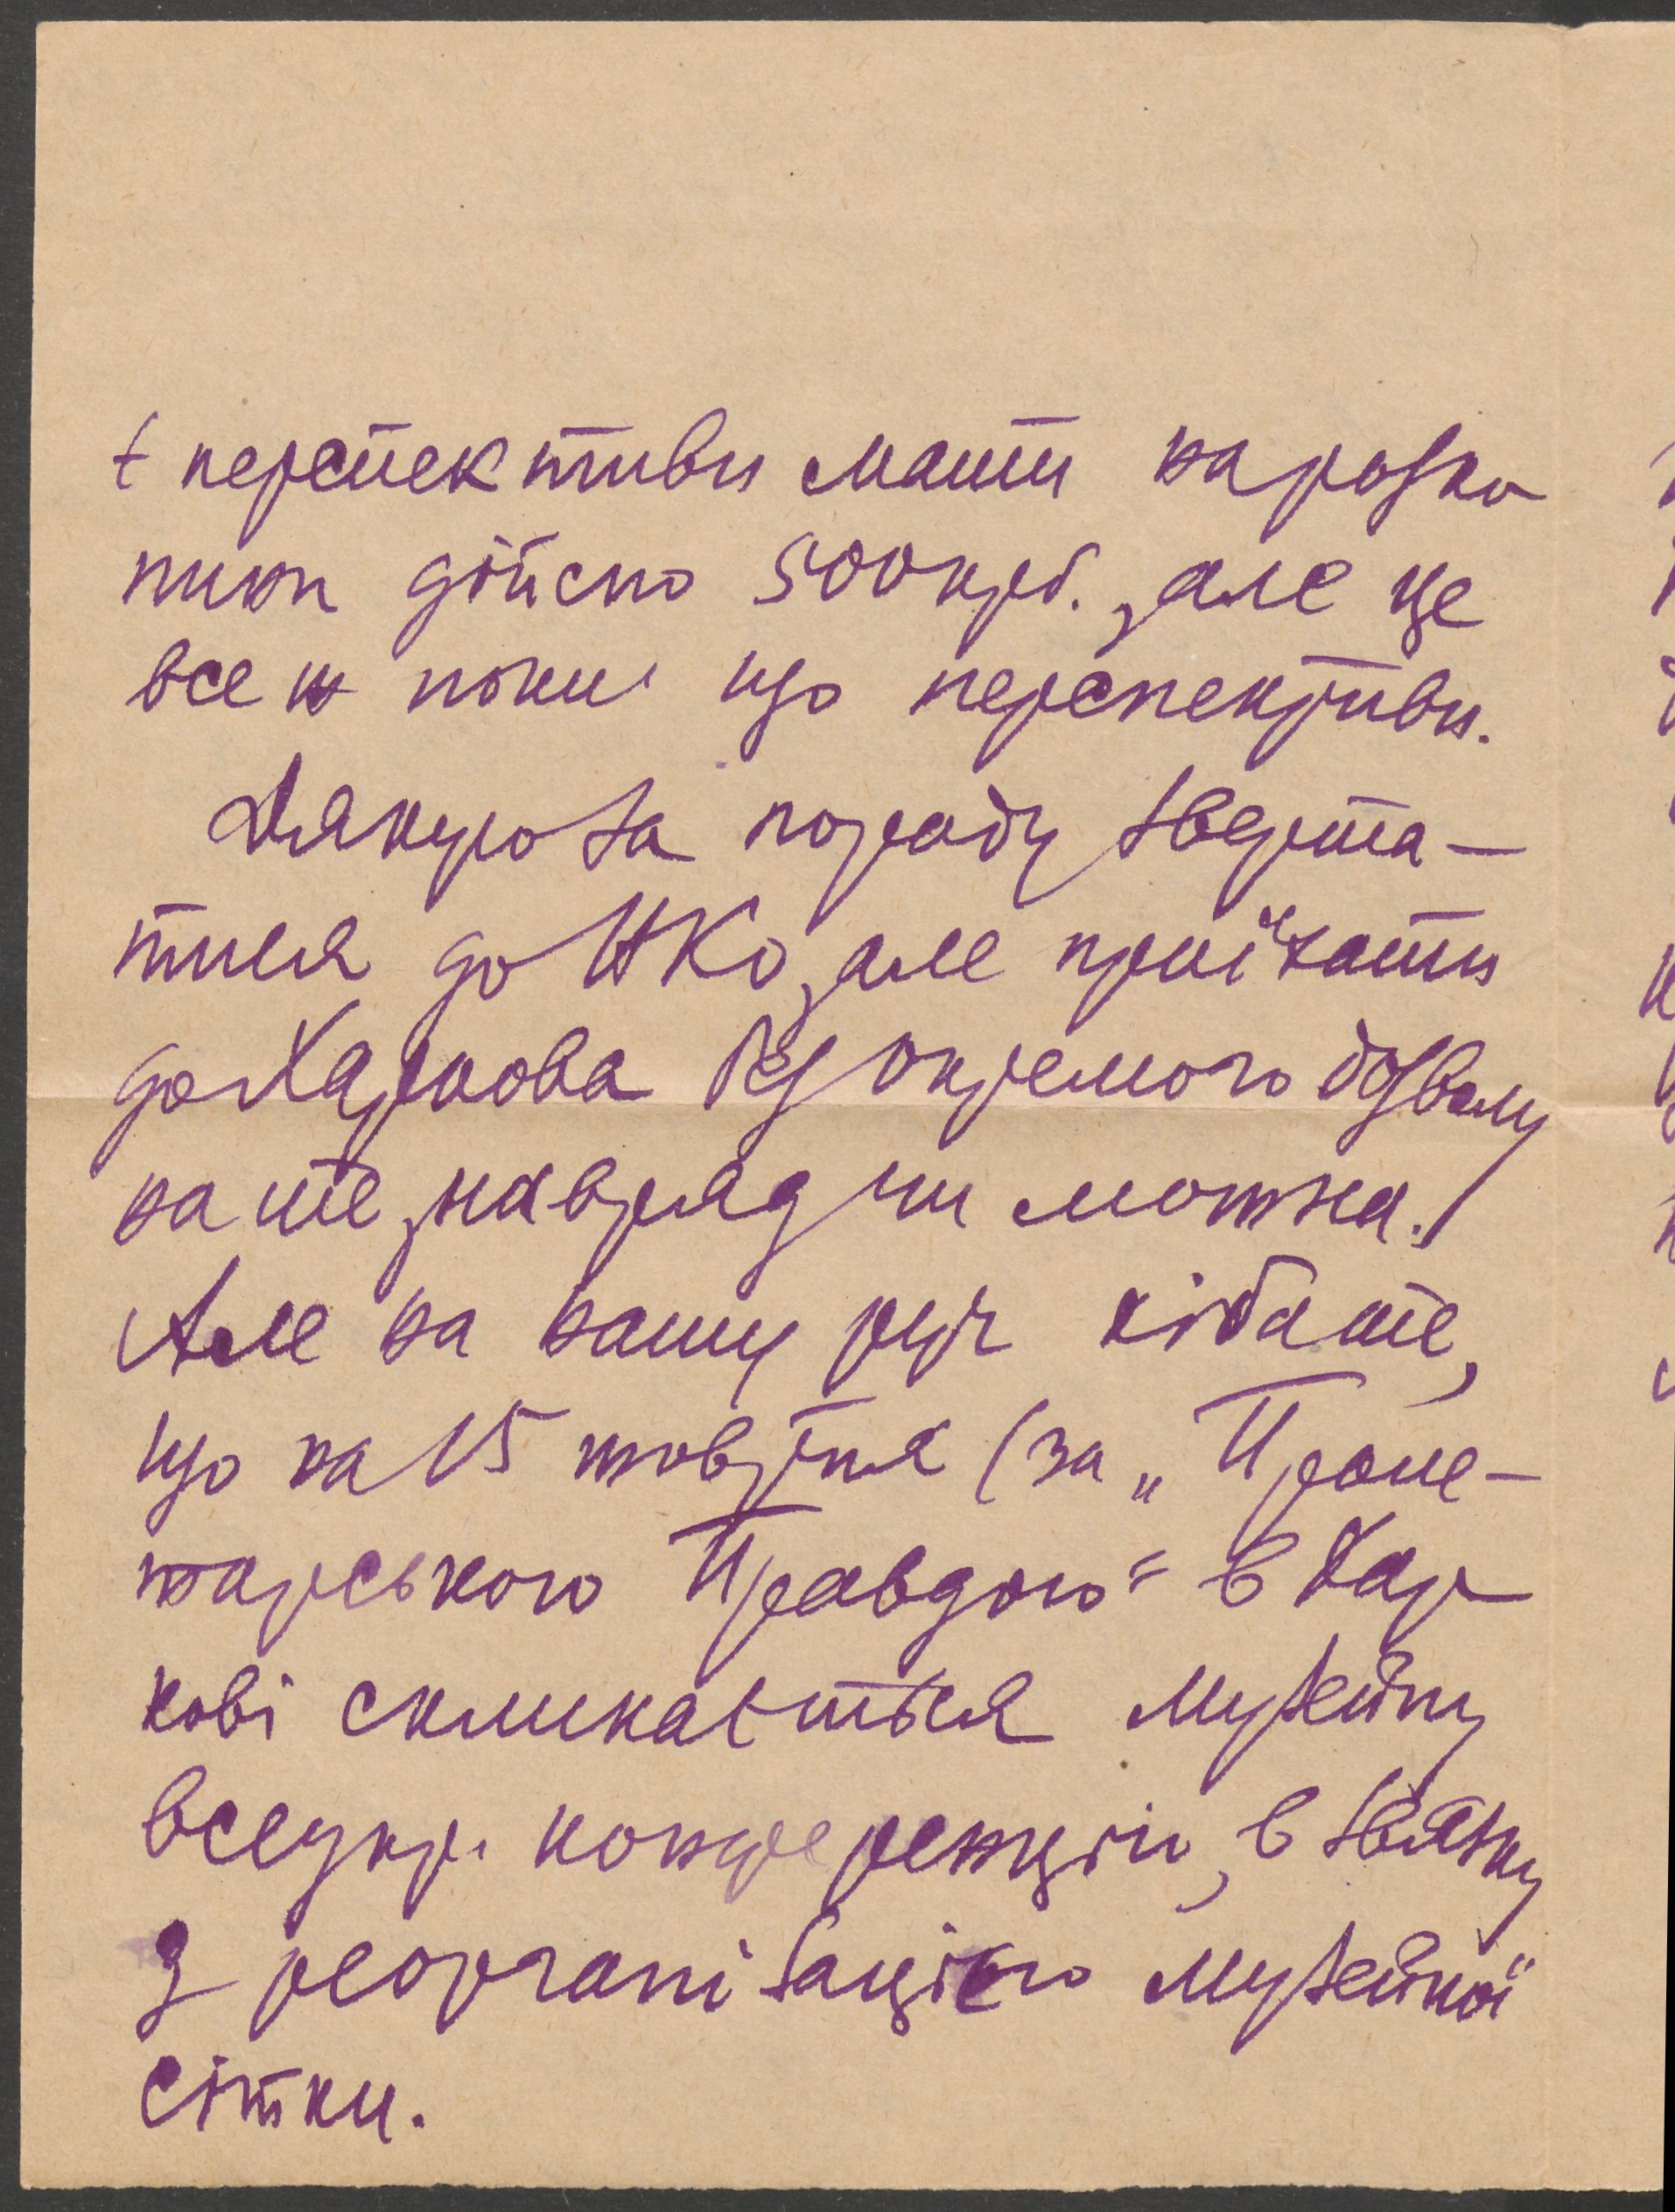 є перспективи мати на розко
пини дійсно 500 крб., але це
все ж поки що перспективи.
Дякую за пораду зверта–
тися до НКО, але приїзати
до Харкова без окремого дозволу
на те, навряд чи можна.
Але на нашу руч хіба те,
що на 15 жовтня (за „Проле–
тарською Правдою" в Хар
кові скликається музейну
всеукр. конференцію, в звязку
з реорганізацією музейної
сітки.